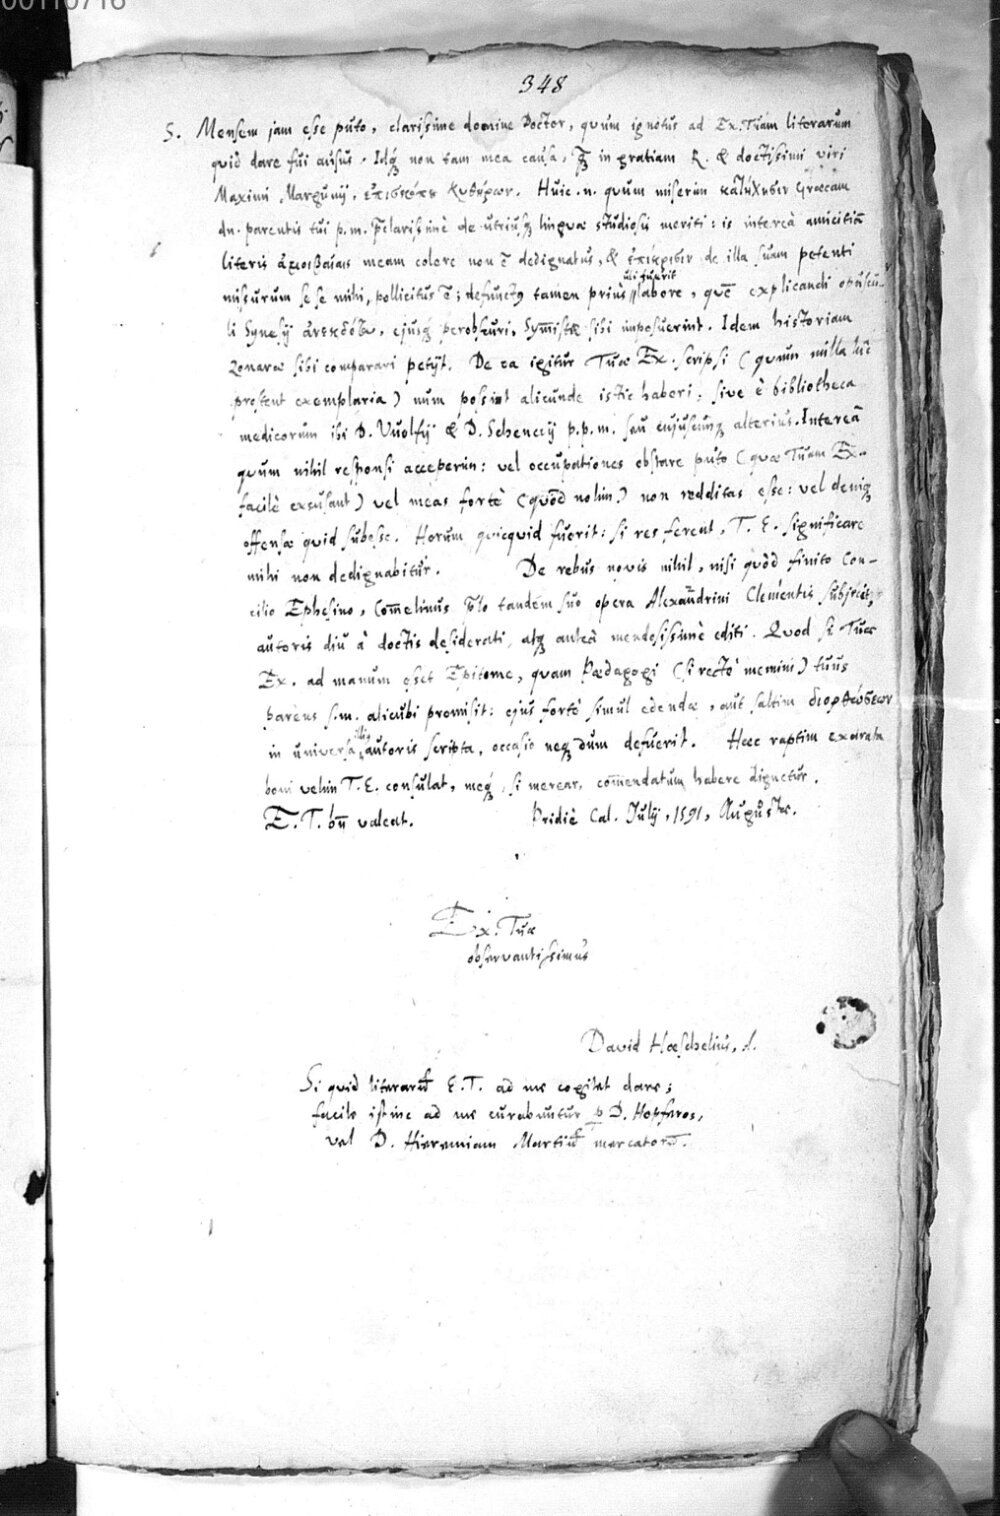 00110716
348
S. Mensem jam esse puto, clarissime domine Doctor, quum ignotus ad Ex. Tuam literarum
quid dare fui ausus. Idq; non tam mea causa, q; in gratiam R. & doctissimi viri
Maximi Margunij, ἐπισκόπου Κυθήρων. Huic .n. quum miserim κατήχησιν Græcam
dn. parentis tui p.m. clarissimè de utriusq; linguæ studiosis meriti: is intereà amicitiā
literis ἀμοιβαίαις meam colere non ē dedignatus, & ἐπίκρισιν de illa suam petenti
missurum se se mihi, pollicitus ē; defunctus tamen priùs labore, quē explicandi opuscu-
ubi fuerit
li Synesij ἀνεκδότου, ejusq; perobscuri, Symistæ sibi imposuerint. Idem historiam
Zonaræ sibi comparari petijt. De ea igitur Tuæ Ex. scripsi (quum nulla hîc
prostent exemplaria) num possint alicunde istic haberi, sive è bibliotheca
medicorum ibi D. Vuolfij & D. Schenckij p.p.m. seu cujuscunq; alterius. Intereà
quum nihil responsi acceperim: vel occupationes obstare puto (quæ Tuam Ex.
facilè excusant) vel meas fortè (quod nolim) non redditas esse: vel deniq;
offensæ quid subesse. Horum quicquid fuerit: si res ferent, T. E. significare
mihi non dedignabitur. De rebus novis nihil, nisi quòd finito Con-
cilio Ephesino, Commelinus prelo tandem suo opera Alexandrini Clementis subjiciet,
autoris diu à doctis desiderati, atq; anteà mendosissimè editi. Quod si Tuæ
Ex. ad manum esset Epitome, quam Pædagogi (si rectè memini) tuus
parens s.m. alicubi promisit: ejus fortè simul edendæ, aut saltim διορθώσεων
in universa autoris scripta, occasio neq; dum defuerit. Hæc raptim exarata
illius
boni velim T. E. consulat, meq; si merear, comendatum habere dignetur.
E. T. bñ valeat. Pridiè Cal. Julij, 1591, Augustæ.
Ex. Tuæ
observantissimus
David Hœschelius, A.
Si quid literarū E. T. ad me cogitet dare;
facile istinc ad me curabuntur p D. Hopferos,
vel D. Hieremiam Martiū mercatorē.